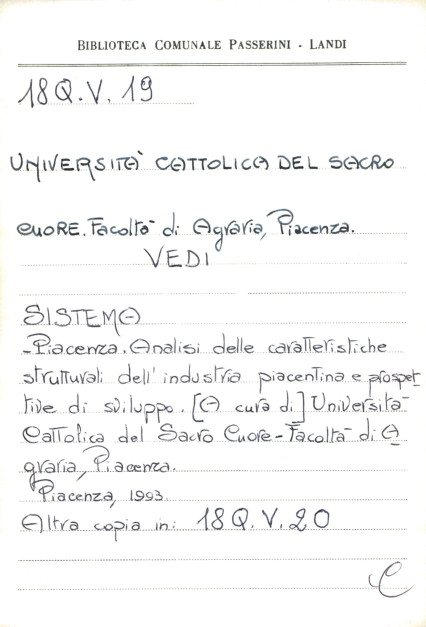 BIBLIOTECA COMUNALE PASSERINI - LANDI
18Q.V.19
UNIVERSITÀ CATTOLICA DEL SACRO
CUORE. Facoltà di Agraria, Piacenza.
VEDI
SISTEMA
-Piacenza. Analisi delle caratteristiche
strutturali dell'industria piacentina e prospet
tive di sviluppo. [A cura di] Università
Cattolica del Sacro Cuore-Facoltà di A
graria, Piacenza.
Piacenza, 1993.
Altra copia in: 18Q.V.20
C